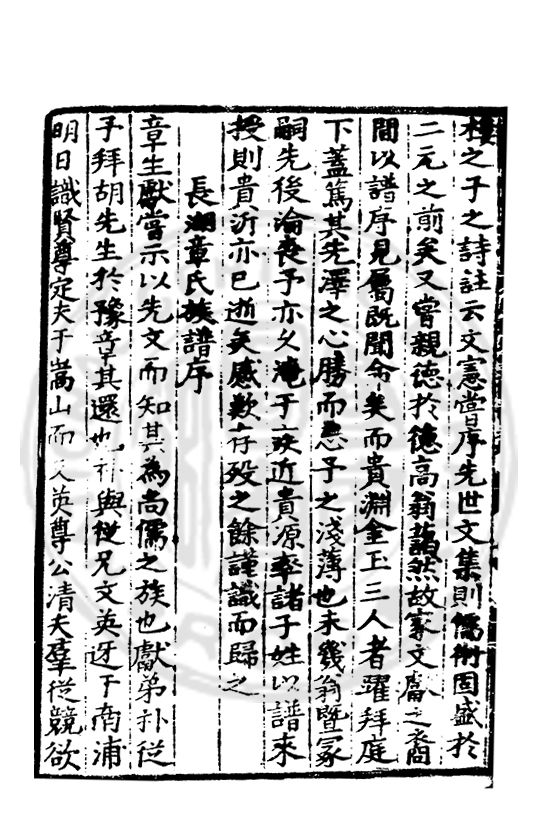 樓之子之詩註云文憲嘗序先世文集則儒術固盛於
二元之前矣又嘗親德於德高翁藹然故家文獻之裔
間以譜序見屬既聞命矣而貴淵金玉三人者躍拜庭
下蓋篤其先澤之心勝而忘予之淺薄也未幾翁暨冢
嗣先後淪喪予亦久淹于疾近貴源率諸子姓以譜來
授則貴沂亦已逝矣感歎存歿之餘謹識而歸之
長湖章氏族譜序
章生獻嘗示以先文而知其為尚儒之族也獻弟朴從
予拜胡先生於豫章其還也朴與從兄文英迓于南浦
明日識賢尊定夫于嵩山而文英尊公清夫羣從競欲